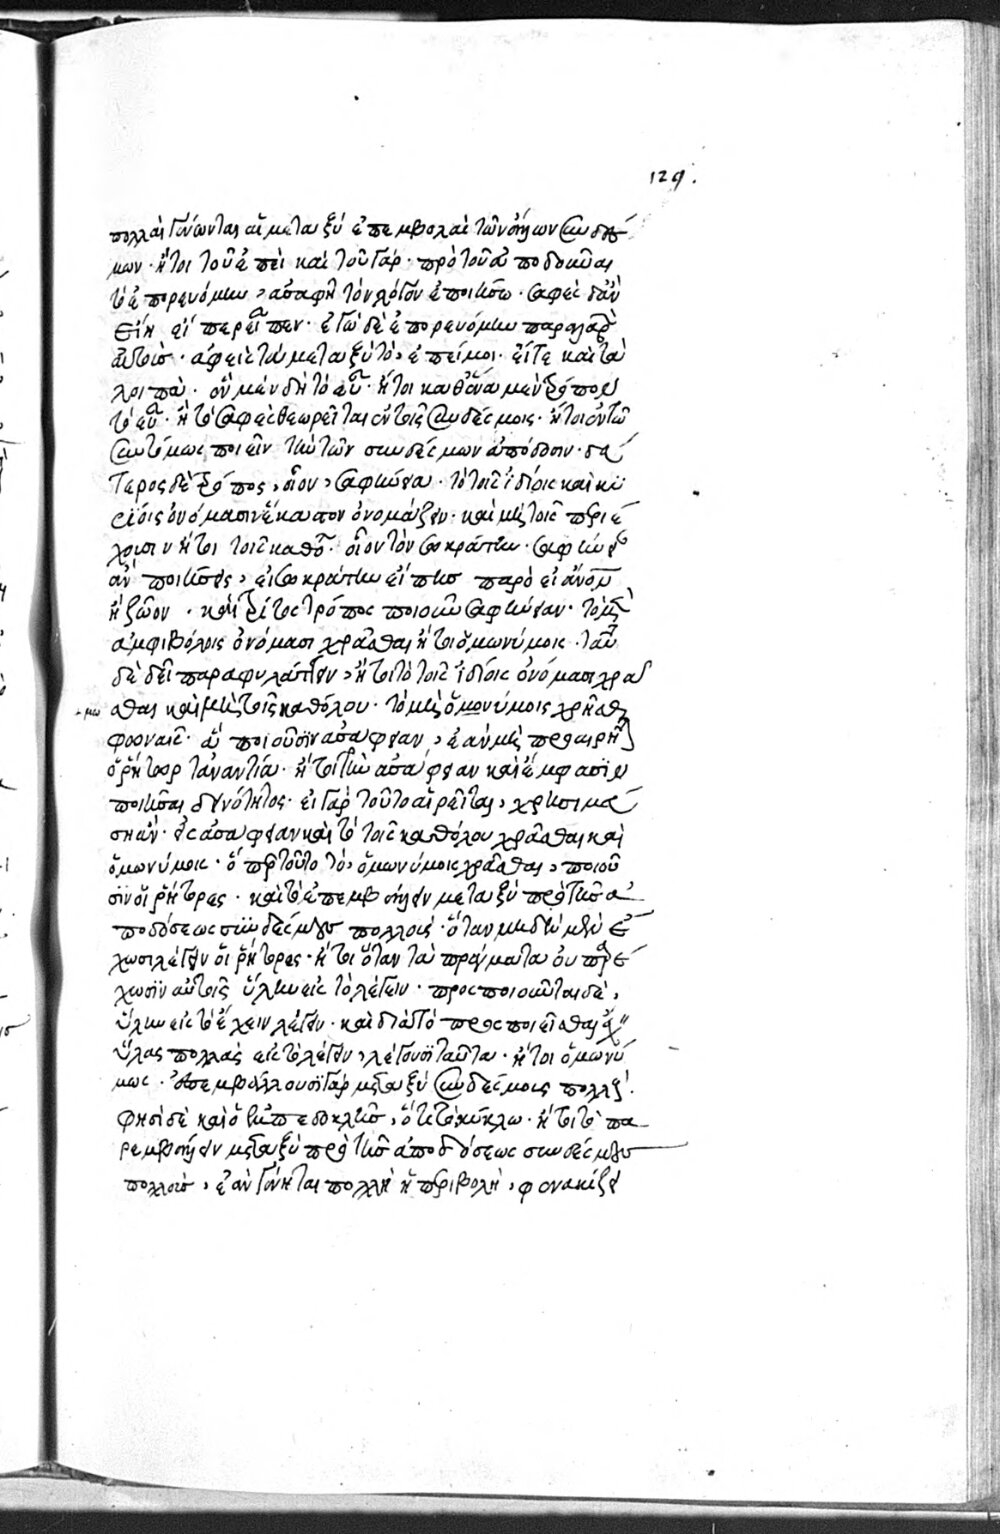 129.
πολλαὶ γίνωνται αἱ μεταξὺ ἐπεμβολαὶ τῶν ἄλλων συνδέσ
μων · ἤτοι τοῦ ἐπεὶ καὶ τοῦ γάρ · πρὸ τοῦ ἀποδοῦναι
τὸ ἐπορευόμην, ἀσαφῆ τὸν λόγον ἐποίησεν · σαφὲς δ' ἂν
εἴη εἴπερ εἶπεν · ἐγὼ δὲ ἐπορευόμην παραλαβὼν
αὐτούς · ἀφεὶς τὸ μεταξὺ τὸ, ἐπεί μοι · εἶτε καὶ τὰ
λοιπά · ἓν μὲν δὴ τὸ εὖ · ἤτοι καθ' ἕνα μὲν τρόπον
τὸ εὖ · ἢ τὸ σαφὲς θεωρεῖται ἐν τοῖς συνδέσμοις · ἤτοι ἐν τῷ
συντόμως ποιεῖν τὴν τῶν συνδέσμων ἀπόδοσιν · δεύ
τερος δὲ τρόπος, οἷον, σαφηνείας · τὸ τοῖς ἰδίοις καὶ κυ
ρίοις ὀνόμασιν ἕκαστον ὀνομάζειν · καὶ μὴ τοῖς περιέ
χουσιν ἤτοι τοῖς καθόλου · οἷον τὸν σωκράτην · σαφηνείας
ἂν ποιήσεις, εἰ σωκράτην εἴπῃς παρὸ εἰ ἄνθρωπον
ἢ ζῷον · καὶ τρίτος τρόπος ποιοῦν σαφήνειαν · τὸ μὴ
ἀμφιβόλοις ὀνόμασι χρᾶσθαι ἤτοι ὁμωνύμοις · ταῦτα
δὲ δεῖ παραφυλάττειν, ἤτοι τὸ τοῖς ἰδίοις ὀνόμασι χρᾶ
σθαι καὶ μὴ τοῖς καθόλου · τὸ μὴ ὁμωνύμοις χρῆσθαι
φωναῖς · αἳ ποιοῦσιν ἀσάφειαν, ἐὰν μὴ προαιρῆται
ὁ ῥήτωρ τἀναντία · ἤτοι τὴν ἀσάφειαν καὶ ἔμφασιν
ποιῆσαι δεινότητος · εἰ γὰρ τοῦτο αἱρεῖται, χρήσιμα
σηαν · εἰς ἀσάφειαν καὶ τὸ τοῖς καθόλου χρᾶσθαι καὶ
ὁμωνύμοις · ὅπερ τοῦτο τὸ, ὁμωνύμοις χρᾶσθαι, ποιοῦ
σιν οἱ ῥήτορες · καὶ τὸ ἐπεμβάλλειν μεταξὺ πρὸ τῆς ἀ
ποδόσεως συνδέσμους πολλούς · ὅταν μηδὲν μὲν ἔ
χωσι λέγειν οἱ ῥήτορες · ἤτοι ὅταν τὰ πράγματα οὐ παρέ
χωσιν αὐτοῖς ὕλην εἰς τὸ λέγειν · προσποιοῦνται δὲ,
ὕλην εἰς τὸ ἔχειν λέγειν · καὶ διὰ τὸ προσποιεῖσθαι ἔχειν
ὕλας πολλὰς εἰς τὸ λέγειν, λέγουσι ταῦτα · ἤτοι ὁμωνύ
μως · ἐπεμβάλλουσι γὰρ μεταξὺ συνδέσμοις πολλοῖς ·
φησὶ δὲ καὶ ὁ ἐμπεδοκλῆς, ὅτι τὸ κύκλῳ · ἤτοι τὸ πα
ρεμβάλλειν μεταξὺ πρὸ τῆς ἀποδόσεως συνδέσμους
πολλοὺς, ἐὰν γένηται πολλὴ ἡ περιβολὴ, φενακίζει